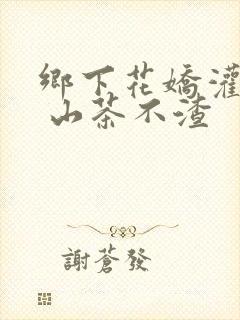 鄉下花嬌灌
山茶不渣
謝蒼發